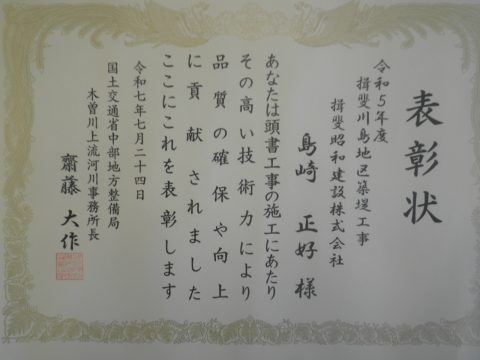 表彰状
令和5年度
揖斐川島地区築堤工事
揖斐昭和建設株式会社
島崎 正好 様
あなたは頭書工事の施工にあたり
その高い技術力により
品質の確保や向上
に貢献されました
ここにこれを表彰します
令和七年七月二十四日
国土交通省中部地方整備局
木曽川上流河川事務所長
齋藤 大作